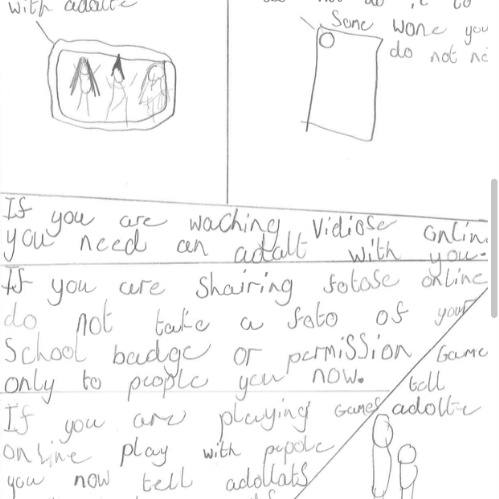 with adalte
Some wone you
do not
If you are waching Vidiose onlin
you need an adalt with you.
If you are Shairing fotose online
do not take a foto of your
School badge or permission
only to people you now.
Game
tell
adolte
If you are playing Games
online play with pepole
you now tell adollats